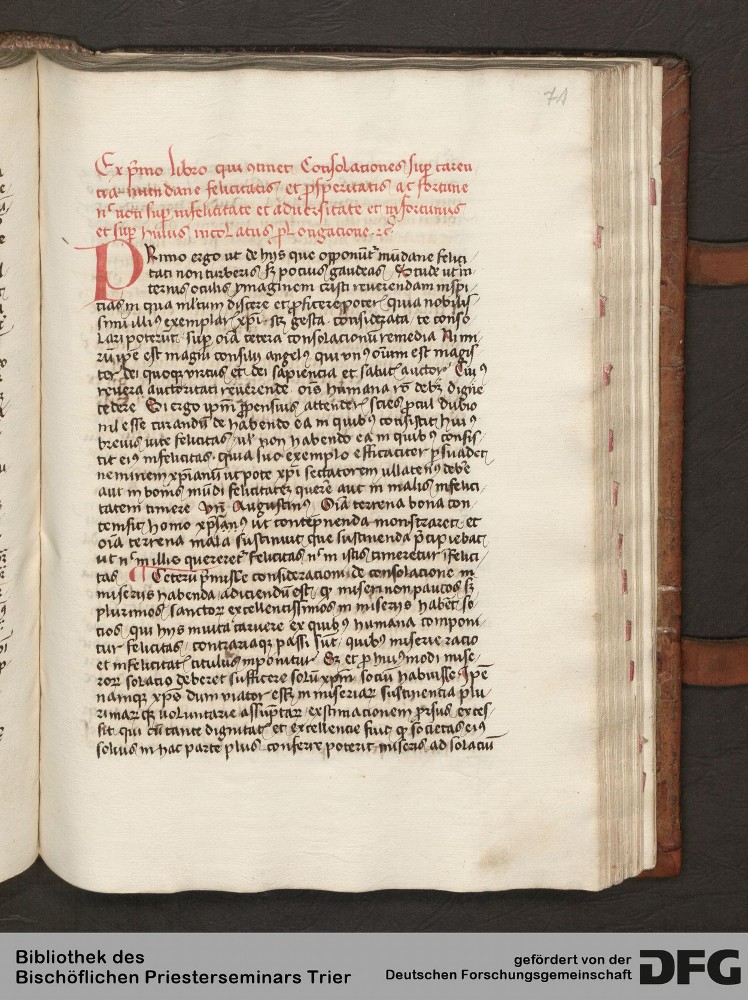 71
Ex pͥmo libro qui ꝯtinet Consolationes sup̱ caren
tia mundane felicitatis et ꝓsperitatis ac fortune
nͨ non sup̱ infelicitate et aduersitate et infortunijs
et sup̱ huius incolatus ꝓlongacione ⁊cͣ
PRimo ergo ut de hijs que opponunt᷑ mūdane felici
tati non turberis sꝫ pocius gaudeas Extende ut in
ternis oculis ymaginem cristi reuerendam inspi
cias in qua ml̓tum discere et ꝓficere poter᷑ quia nobilis
simi illiꝰ exemplar᷑ xp̄i scꝫ gesta considerata te conso
lari poterūt sup̱ oīa cetera consolacionū remedia Nimi
rū ip̄e est magni consilij angelꝰ qui vnꝰ oīum est magis
ter dei quoqꝫ virtus et dei sapiencia et salut᷑ auctor Cuiꝰ
reuera auctoritati reuerende oīs humana ro debꝫ digne
cedere Si ergo ip̄m ꝓpensius attender᷑ scies ꝓcul dubio
nil esse curandū de habendo ea in quibꝰ consistit huiꝰ
breuis uite felicitas ul̓ non habendo ea in quibꝰ consis
tit eiꝰ infelicitas quia suo exemplo efficaciter ꝑsuadet
neminem xp̄ianū ut pote xp̄i sectatorem ullatenꝰ debe᷑
aut in bonis mūdi felicitatē querere aut in malis infelici
tatem timere Vn̄ Augustinꝰ Oīa terrena bona con
tempsit homo xp̄s ihūs ut contēpnenda monstraret et
oīa terrena mala sustinuit que sustinenda p̄cipiebat
ut nͨ in illis quereret᷑ felicitas nͨ in istis timeretur ifelici
tas ¶ Ceterū p̄misse consideracioni de consolacione in
miserijs habenda adiciendū est qꝫ miseri non paucos sꝫ
plurimos sanctoꝝ excellentissimos in miserijs habent so
cios qui hijs multa caruere ex quibꝰ humana componi
tur felicitas contrariaqꝫ passi sūt quibꝰ miserie racio
et infelicitat᷑ titulus inponitur Sꝫ et ꝓ huiꝰmodi mise
roꝝ solacio deberet sufficere solū xp̄m sociū habuisse Ip̄e
namqꝫ xp̄s dum viator esset in miseriaꝝ sustinencia plu
rimaꝝqꝫ uoluntarie assūptaꝝ exstimacionem ꝓrsus exces
sit qui cū tante dignitat᷑ et excellencie fuit qꝫ societas eiꝰ
solius in hac parte plus conferre poterit miseris ad solaciū
Bibliothek des
Bischöflichen Priesterseminars Trier
gefördert von der
Deutschen Forschungsgemeinschaft
DFG